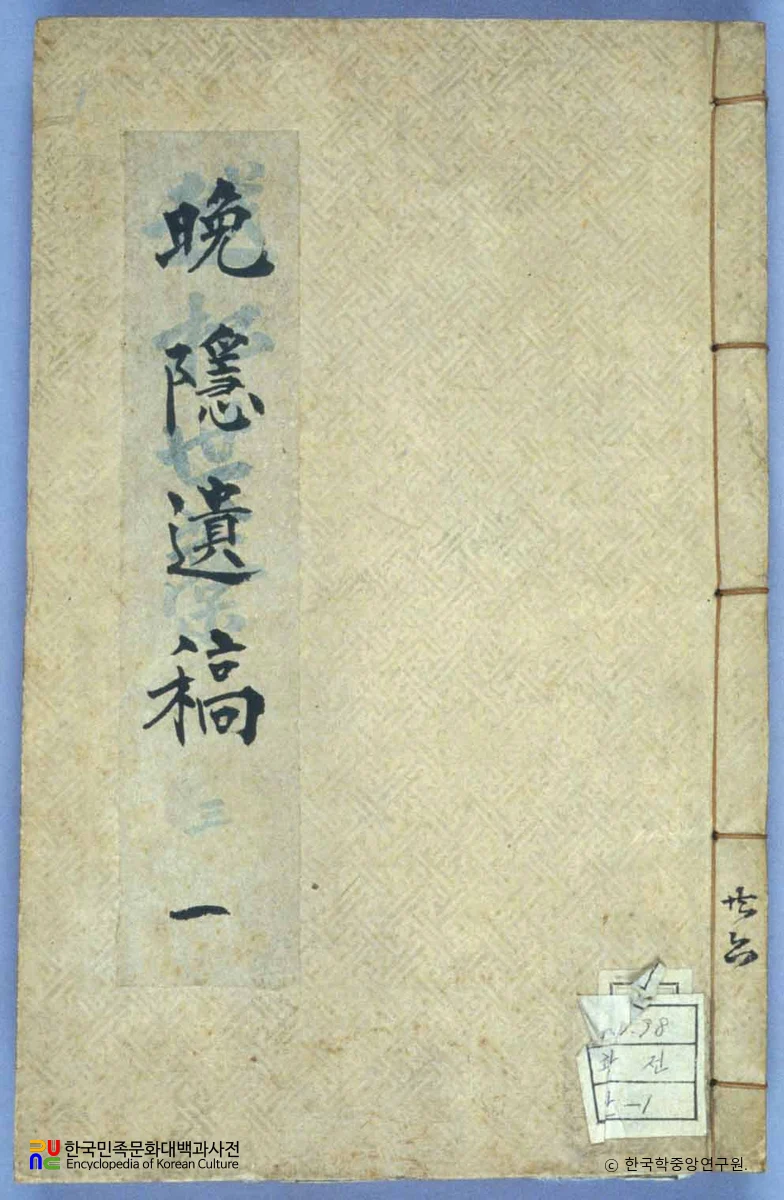 晩隱遺稿
一
三
共六
전
한국민족문화대백과사전
Encyclopedia of Korean Culture
© 한국학중앙연구원.